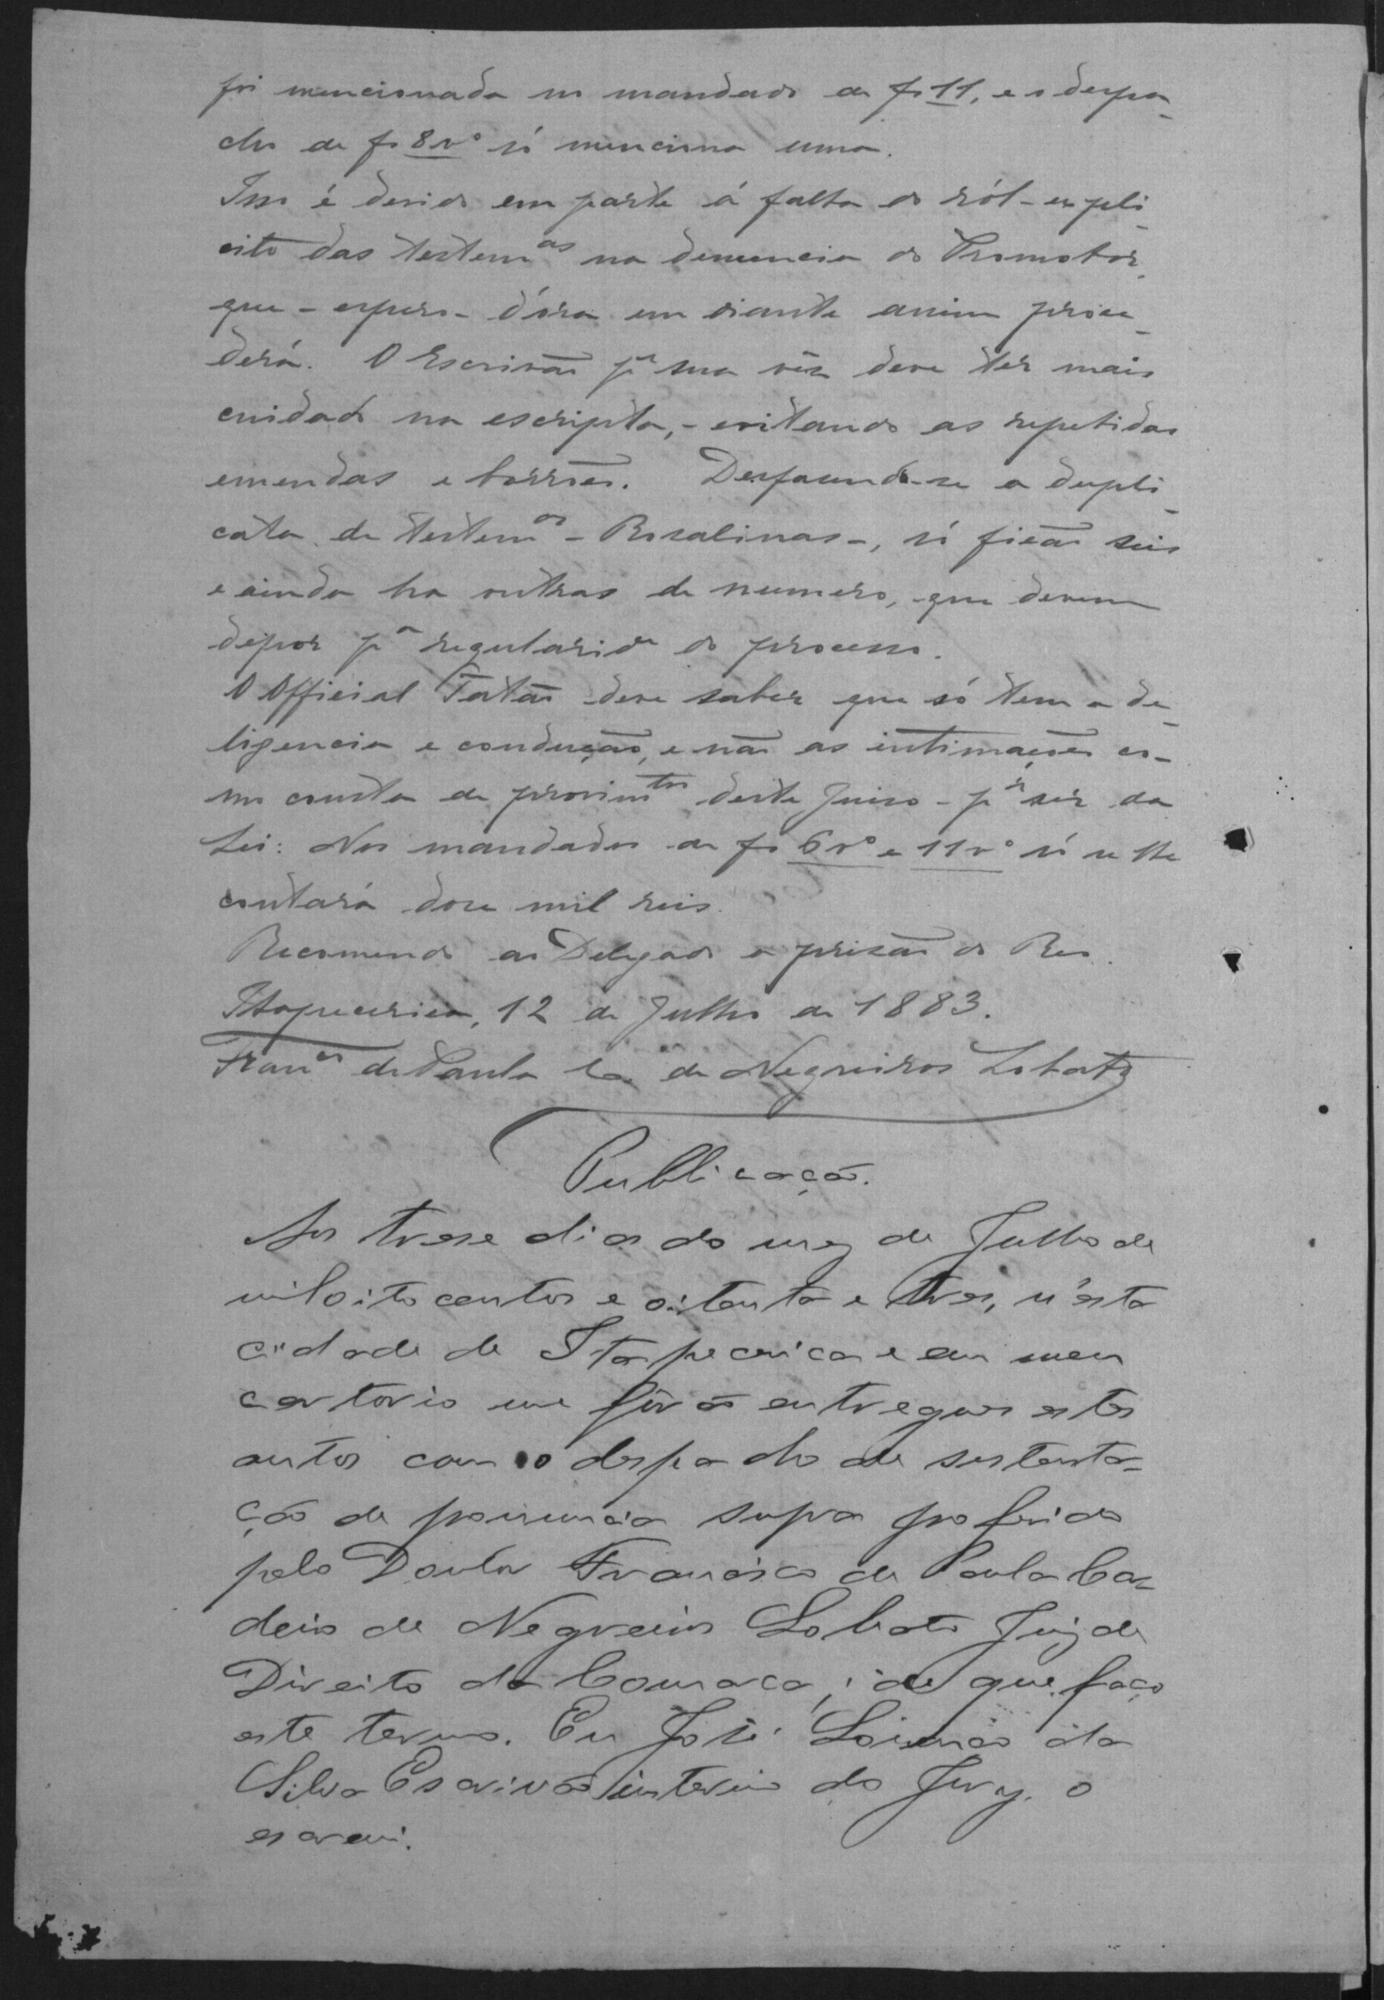 foi mencionada no mandado de fs 11, e o despa-
cho de fs 8 vº só menciona uma.
Isso é devido em parte á falta do ról - expli-
cito das testemas na denuncia do Promotor,
que - espero - d'óra em diante assim proce-
derá. O Escrivão pr sua vêz deve ter mais
cuidado na escripta, - evitando as repetidas
emendas e borrões. Desfasendo-se a dupli-
cata de testemas - Rosalinas -, só ficão seis
e ainda ha outras de numero, que devem
depor pa regularide do processo.
O Official Tatão deve saber que só tem a de-
ligencia e condução, e não as intimações co-
mo consta de provimtos deste Juiso - pr ser da
Lei: Nos mandados de fs 6 vº e 11 vº só se lhe
contará dose mil reis.
Recomendo ao Delegado a prisão do Reo.
Itapecerica, 12 de Julho de 1883.
Franco de Paula Ca de Negreiros Lobato
Publicação.
Aos trese dias do mez de Julho de
mil oito centos e oitenta e tres, n'esta
cidade de Itapecerica e em meu
cartorio me fôrão entregues estes
autos com o despacho de sustenta-
ção de pronuncia supra proferido
pelo Doutor Francisco de Paula Cor-
deiro de Negreiros Lobato Juiz de
Direito da Comarca; de que faço
este termo. Eu José Lourenço da
Silva Escrivão interino do Jury. o
escrevi.